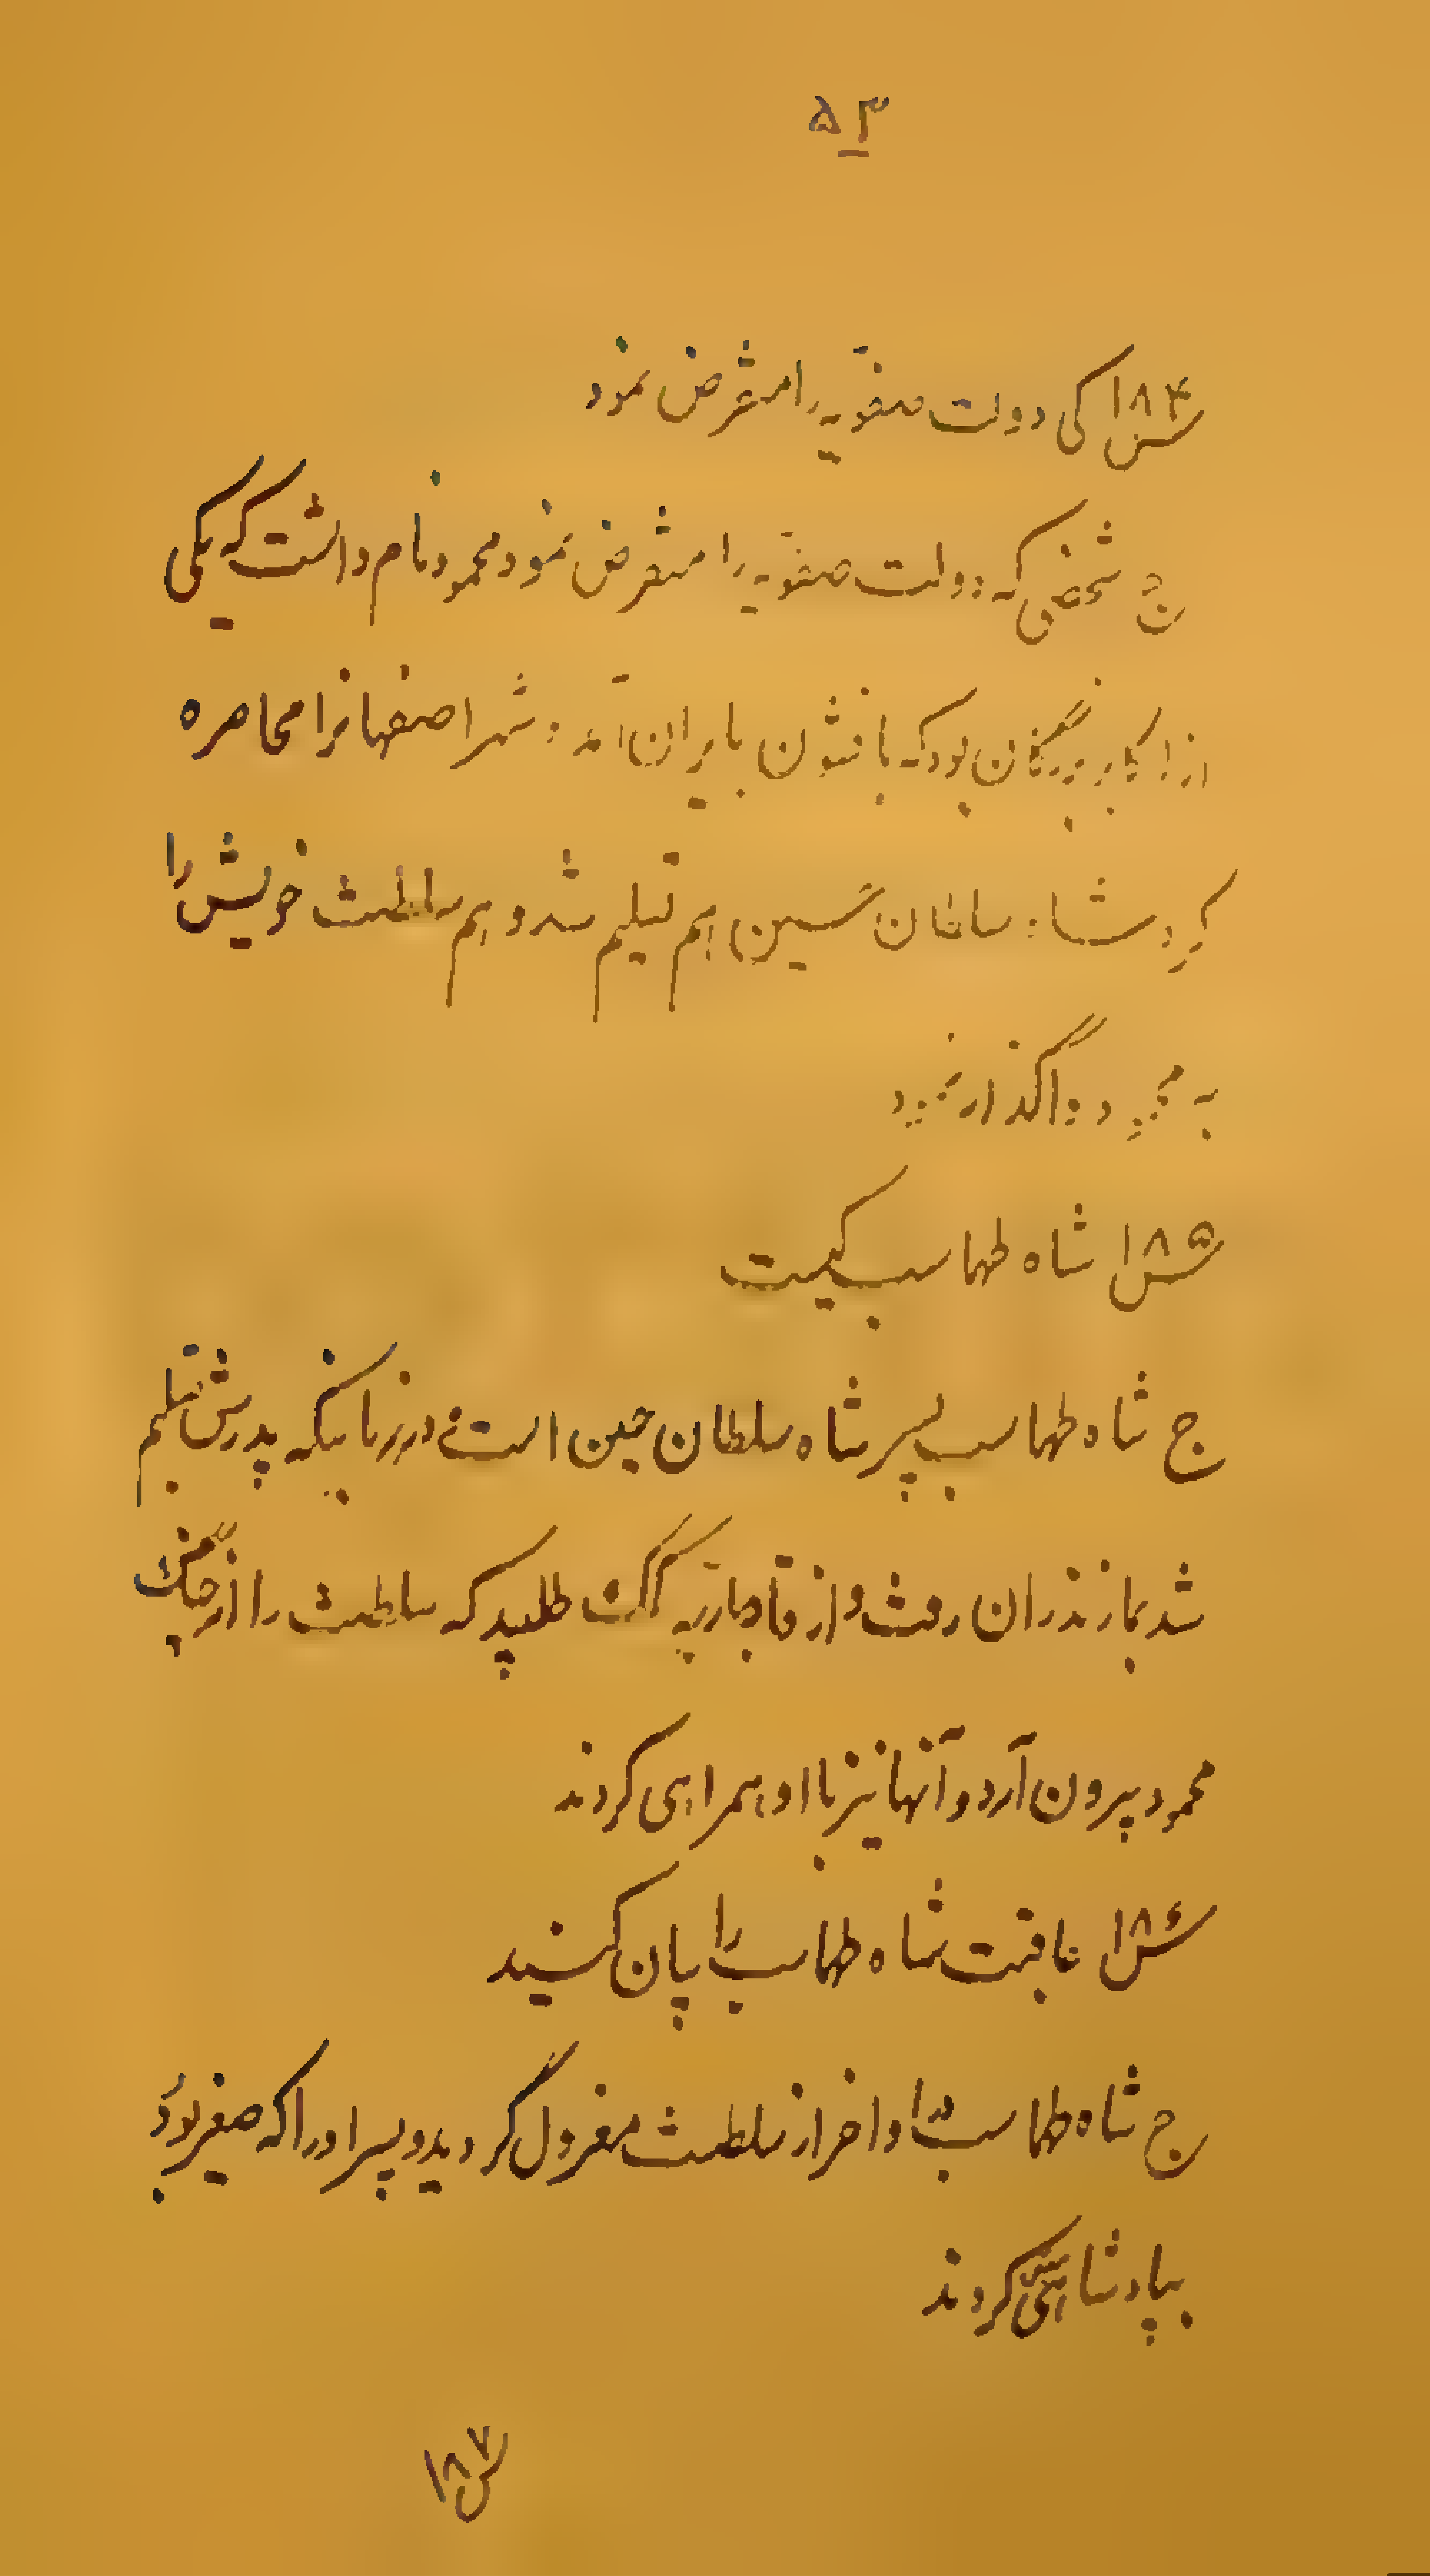 ۵۳
س۱۸۴ کی دولت صفویه را منقرض نمود
ج شخصی که دولت صفویه را منقرض نمود محمود نام داشت که یکی
از اکابر بزرگان بود که با قشون بایران آمد و شهر اصفهانرا محاصره
کرد شاه سلطان حسین هم تسلیم شد و هم سلطنت خویش را
به محمود واگذار نمود
س۱۸۵ شاه طهماسب کیست
ج شاه طهماسب پسر شاه سلطان حسین است در زمانیکه پدرش تسلیم
شد بمازندران رفت و از قاجاریه کمک طلبید که سلطنت را از چنگ
محمود بیرون آرد و آنها نیز با او همراهی کردند
س۱۸۶ عاقبت شاه طهماسب را بیان کنید
ج شاه طهماسب در اواخر از سلطنت معزول گردید و پسر او را که صغیر بود
بپادشاهی کردند
س۱۸۷